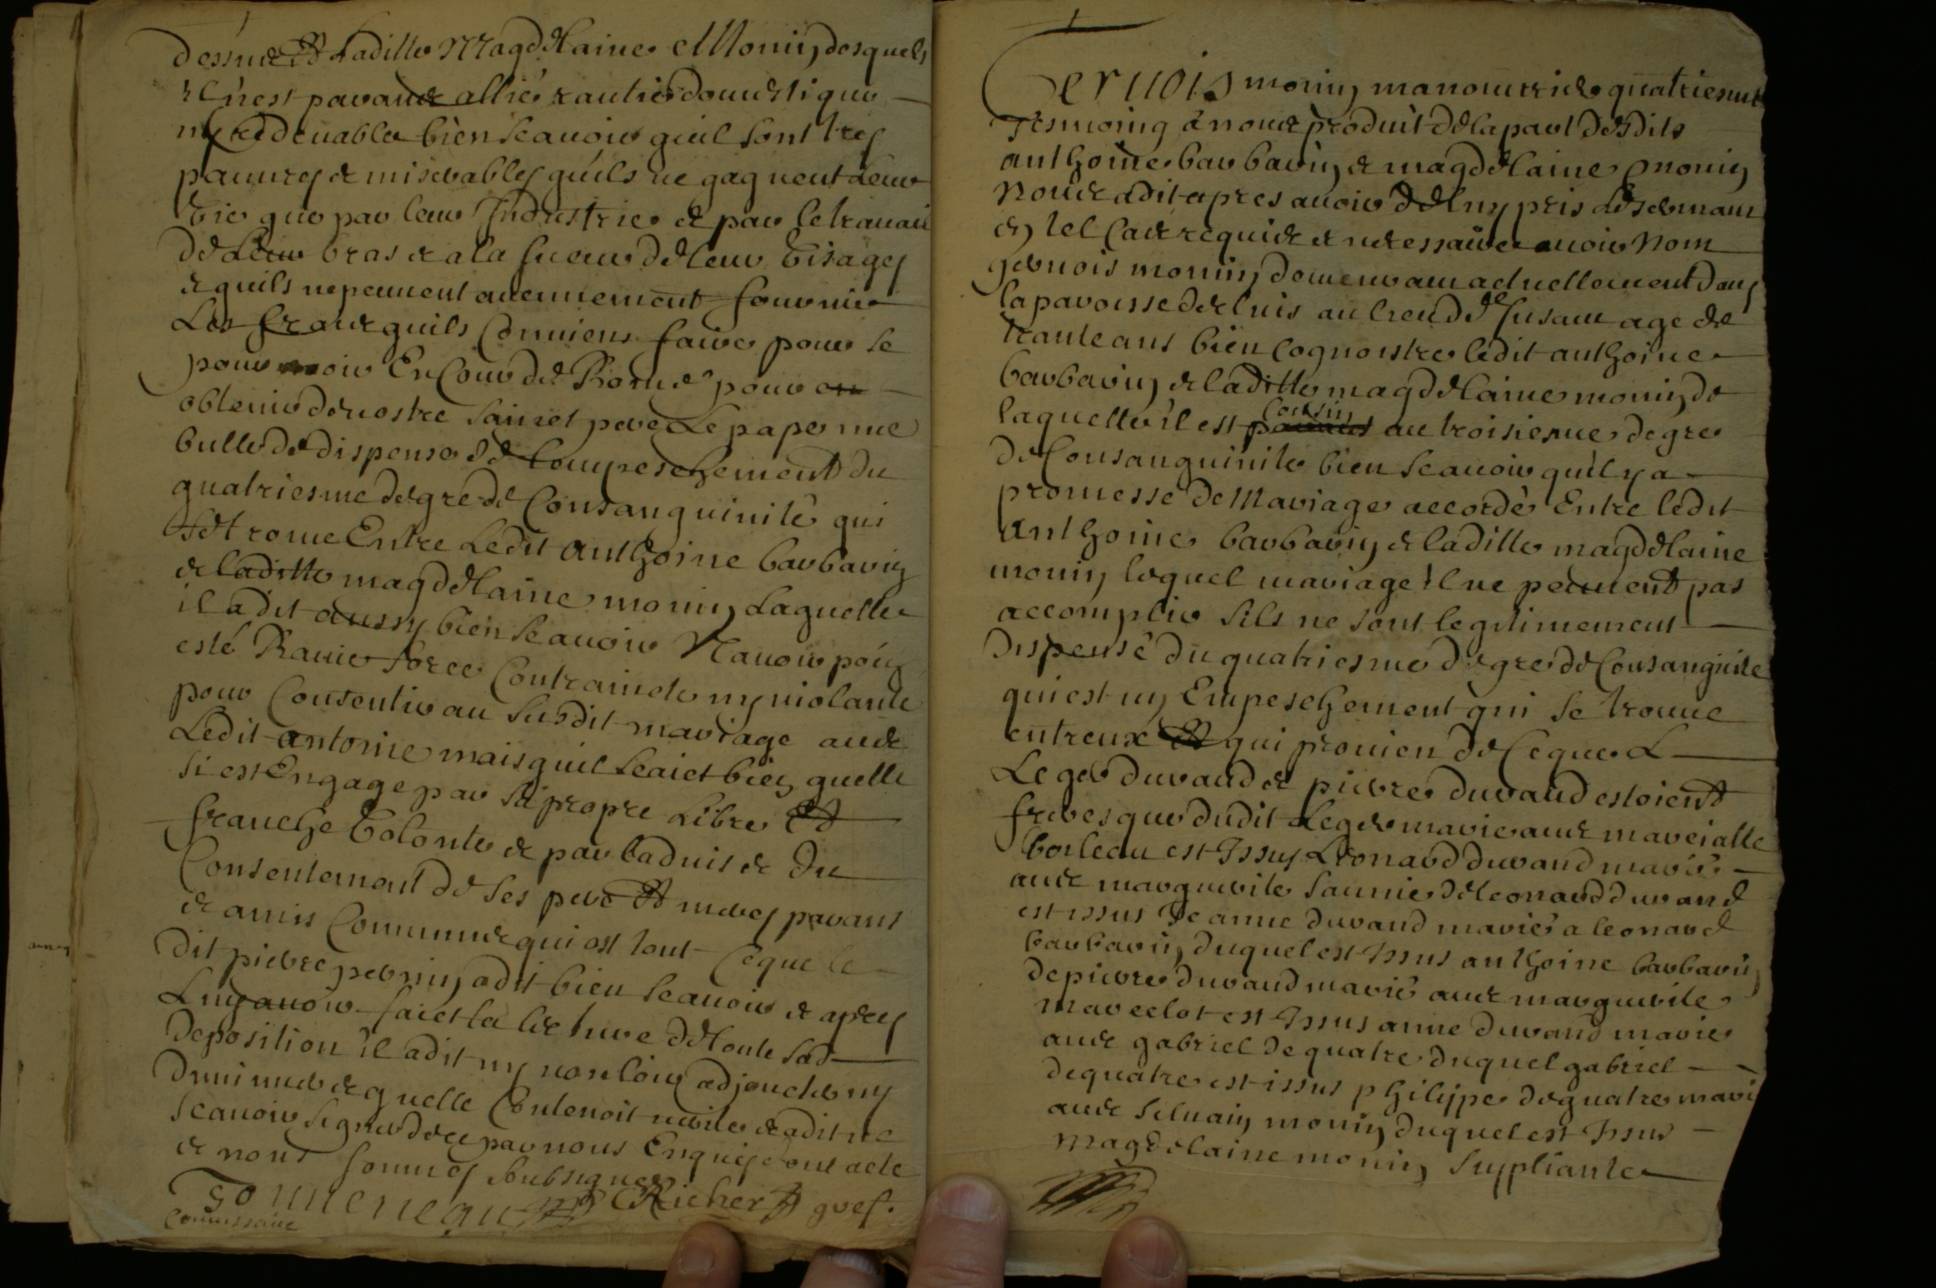 dessus et laditte Magdelaine Monin desquels
il n'est parant allié n'autre domestique
ny redevable bien scauoir quil sont tres
pauures et miserables quils ne gagnent leur
vie que par leur Industrie et par le trauail
de Leur bras et a la sueur de leur visages
et quils ne peuuent aucunement fournir
Les frais quils Conuiens faire pour se
pouruoir En Cour de Rome pour en
obtenir de nostre sainct pere Le pape une
bulle de dispense de Lempeschement du
quatriesme degre de Consanguinité qui
se trouue Entre Ledit anthoine barbarin
et laditte magdelaine monin Laquelle
il a dit aussy bien scauoir Nauoir poin
esté Rauie force Contrainte ny violante
pour Consentir au susdit mariage auec
Ledit antoine mais quil scaict bien quelle
si est Engage par sa propre Libre et
franche volonte et par l'aduis et du
Consentement de ses pere et meres parans
et amis Communs qui est tout ce que le
dit pierre pernin a dit bien scauoir et apres
Luy auoir faict la lecture de toute sad
deposition il a dit ny vouloir adjouter ny
diminuer et quelle Contenoit verite et a dit ne
scauoir signer de ce par nous Enquis dont acte
et nous sommes soubsignes
Tonneneau Richer gref.
Commissaire
Gervois monin manouurier quatriesme
Tesmoing a nous produit de la part desdits
anthoine barbarin et magdelaine monin
Nous a dit apres auoir de luy pris Le serment
en tel Cas requis et necessaire auoir Nom
geruois monin demeurant actuellement dans
la paroisse de luis au lieu de susant age de
trante ans bien cognoistre ledit anthoine
barbarin et laditte magdelaine monin de
laquelle il est cousin au troisiesme degre
de Consanguinite bien scauoir quil y a
promesse de Mariage accordé Entre ledit
anthoine barbarin et laditte magdelaine
monin lequel mariage il ne peuuent pas
accomplir sils ne sont legitimement
dispensé du quatriesme degre de Consanguinite
qui est un Empeschement qui se trouue
entreux et qui prouien de Ceque L
Leger durand et pierre durand estoient
freres que dudit Leger marie auec mareialle
boileau est Issus Leonard durand marié
auec marguerite saunier de leonard durand
est issus Jeanne durand mariée a leonard
barbarin duquel est Issus anthoine barbarin
de pierre durand marié auec marguerite
marcelot est Issus anne durand marie
auec gabriel dequatre duquel gabriel
dequatre est issus philippe dequatre marié
auec siluain monin duquel est Issus
magdelaine monin suppliante